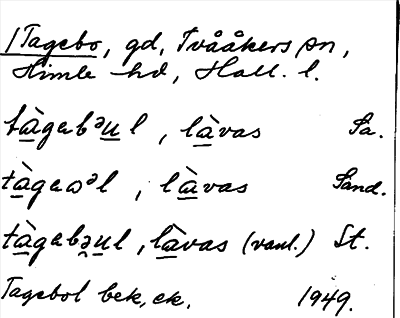 /Tagebo, gd, Tvååkers sn,
Himle hd, Hall. l.
tàgabᵊul, làvas Sa.
tàgaωᵊl, làvas Sand.
tàgabə̯ul, làvas (vanl.) St.
Tagebol bek, ek. 1949.